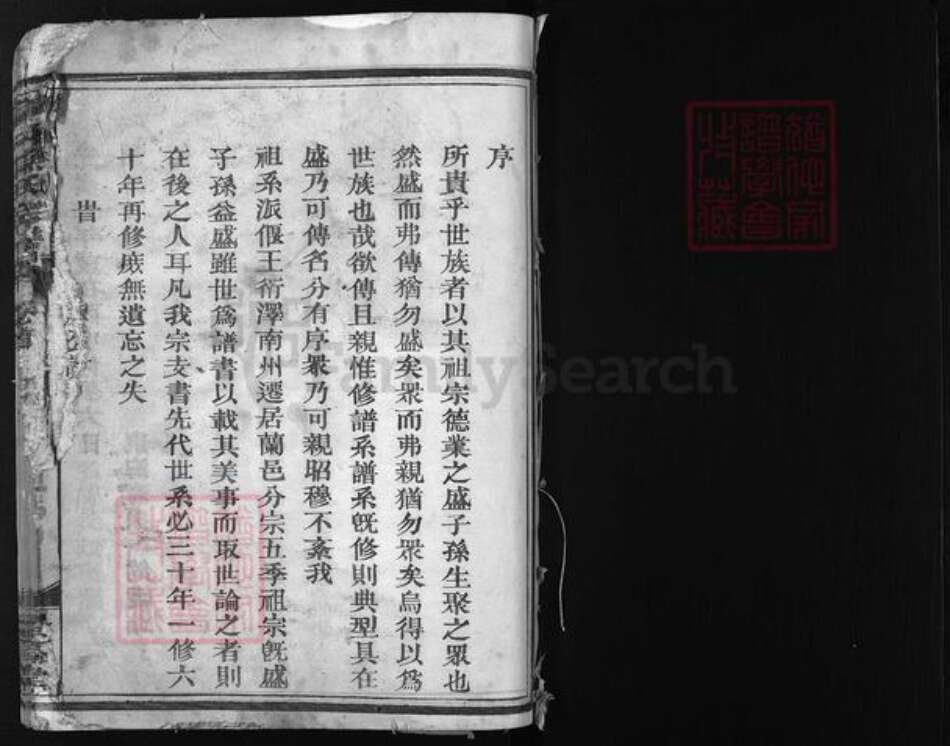 序
所貴乎世族者以其祖宗德業之盛子孫生聚之眾也
然盛而弗傳猶勿盛矣眾而弗親猶勿眾矣烏得以爲
世族也哉欲傳且親惟修譜系譜系旣修則典型具在
盛乃可傳名分有序眾乃可親昭穆不紊我
祖系派偃王衍澤南州遷居蘭邑分宗五季祖宗旣盛
子孫益盛雖世爲譜書以載其美事而取世論之者則
在後之人耳凡我宗支書先代世系必三十年一修六
十年再修庶無遺忘之失
旹
FamilySearch